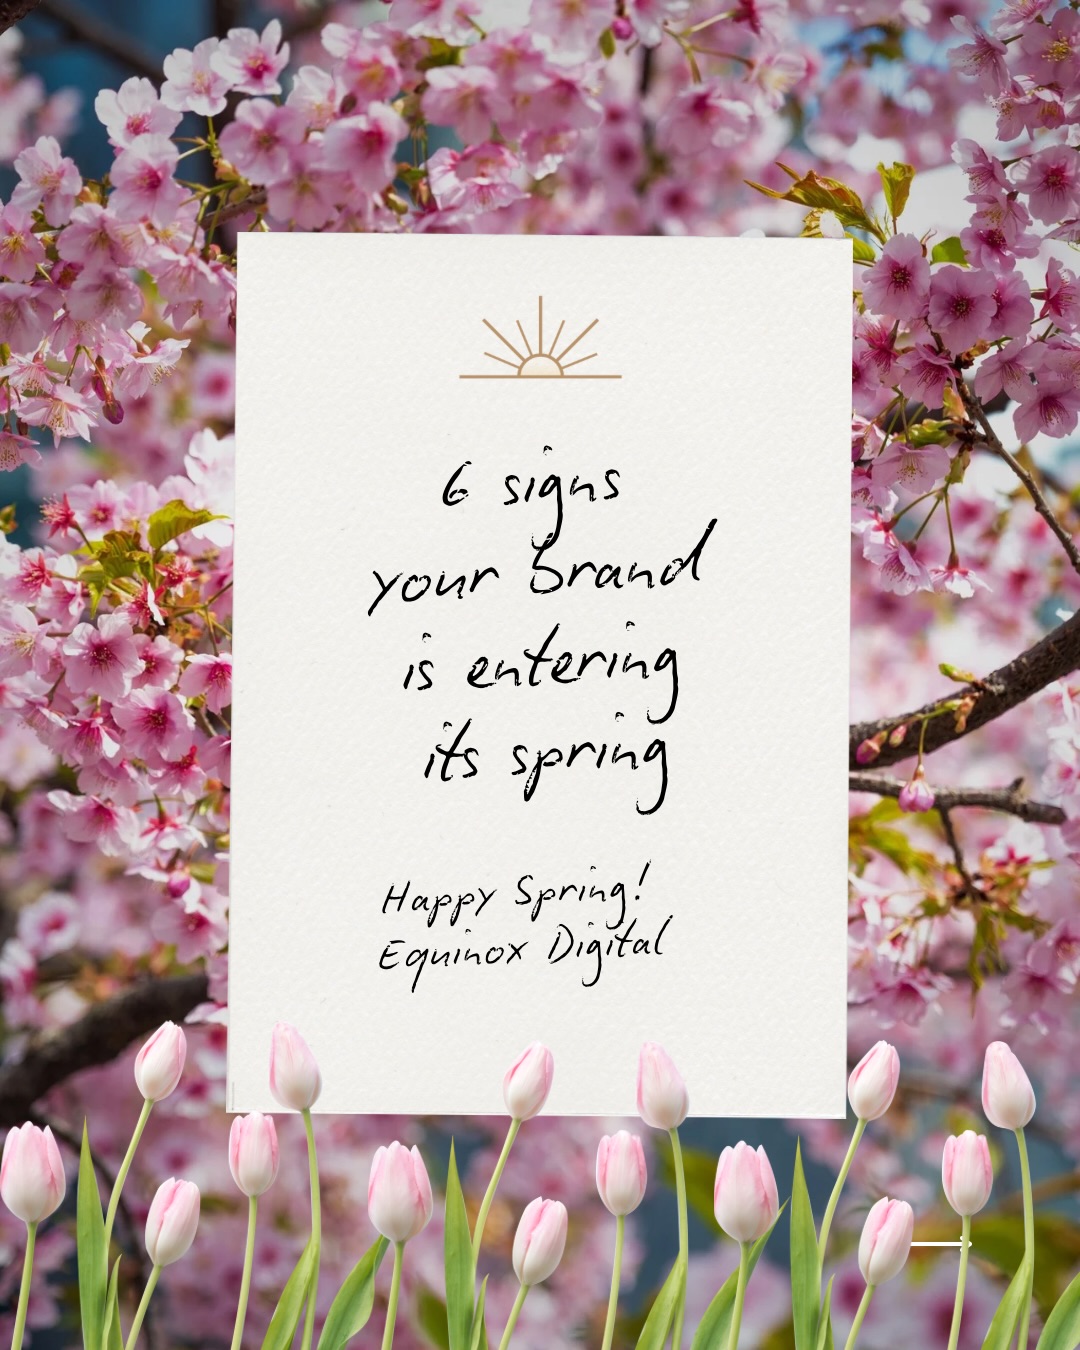 6 signs
your brand
is entering
its spring
Happy Spring!
Equinox Digital